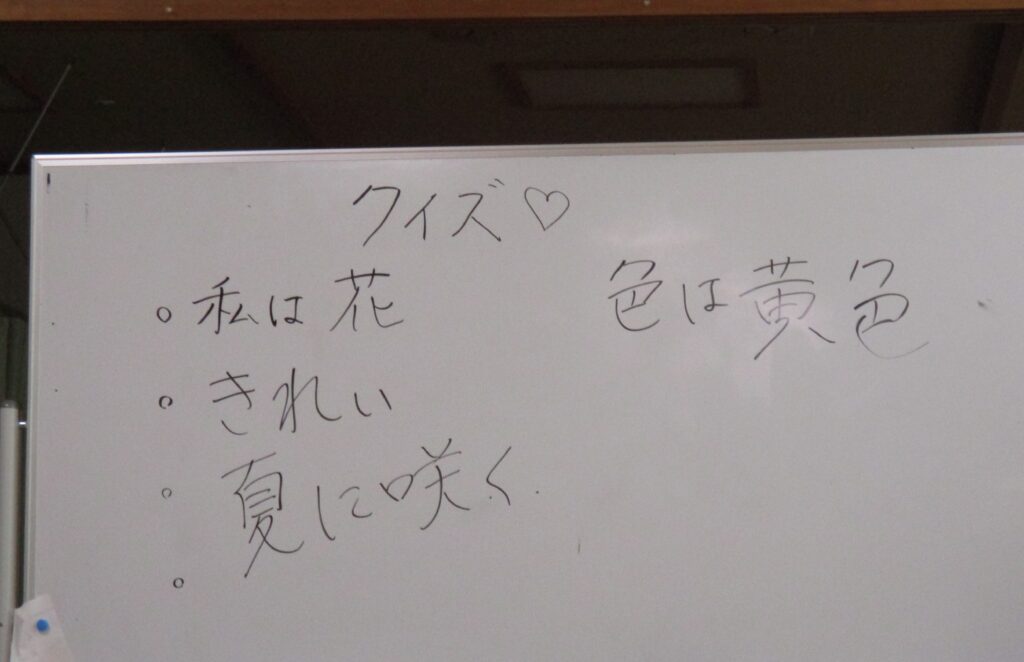 クイズ♡
。私は花
。きれい
。夏に咲く
。
色は黄色